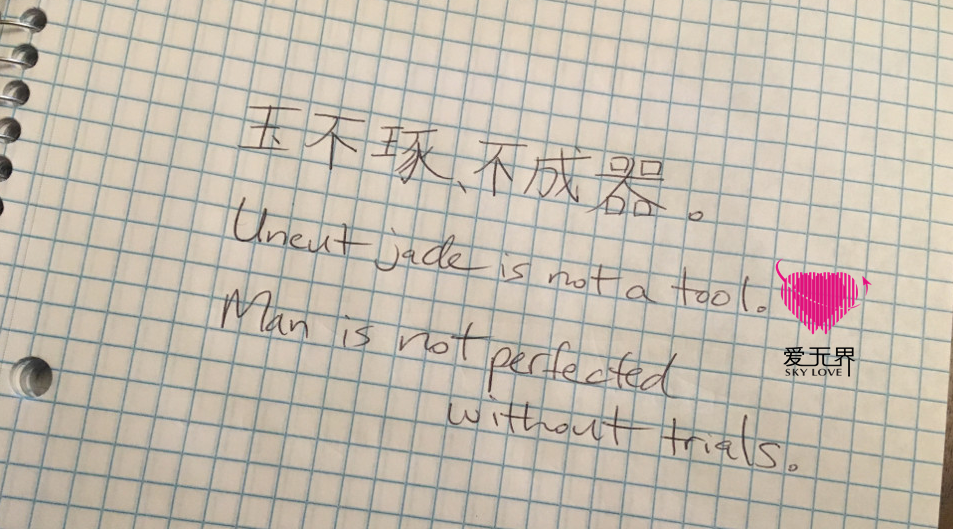 玉不琢、不成器。
Uncut jade is not a tool.
Man is not perfected
without trials.
爱无界
SKY LOVE